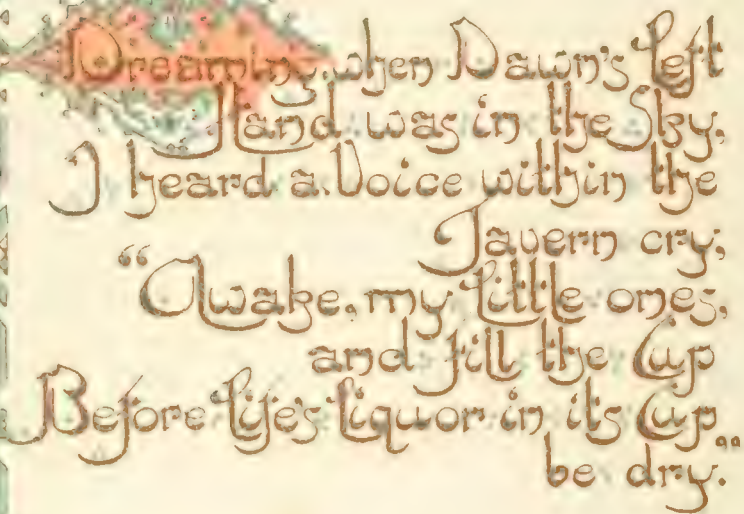 Dreaming, when Dawn's Left
Hand was in the Sky,
I heard a Voice within the
Tavern cry,
"Awake, my Little ones,
and fill the Cup
Before Life's Liquor in its Cup
be dry."